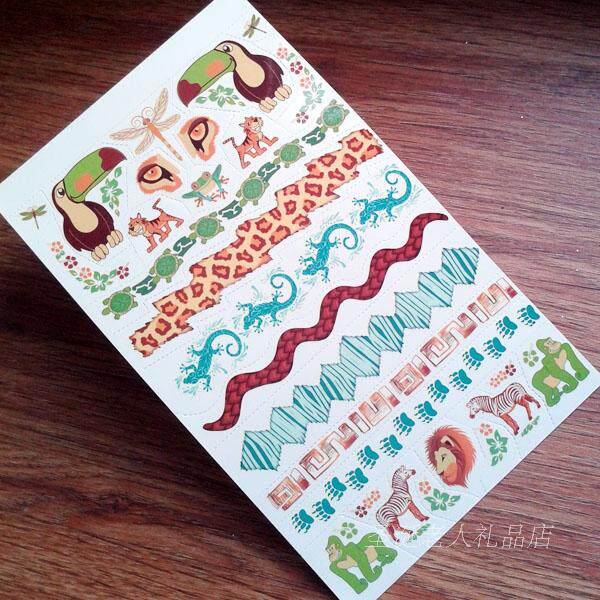 老人礼品店